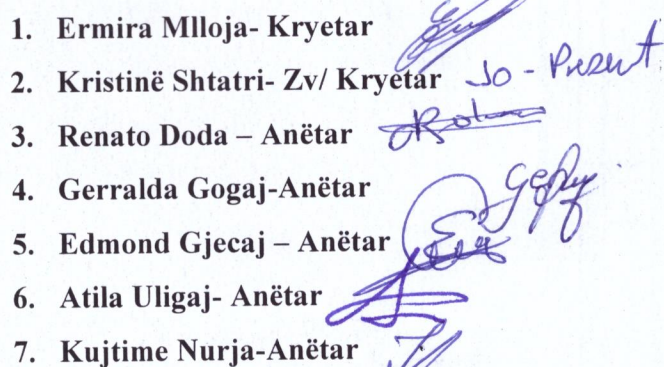 1. Ermira Mlloja- Kryetar
2. Kristinë Shtatri- Zv/ Kryetar Jo - Prezent
3. Renato Doda – Anëtar
4. Gerralda Gogaj-Anëtar
5. Edmond Gjecaj – Anëtar
6. Atila Uligaj- Anëtar
7. Kujtime Nurja-Anëtar